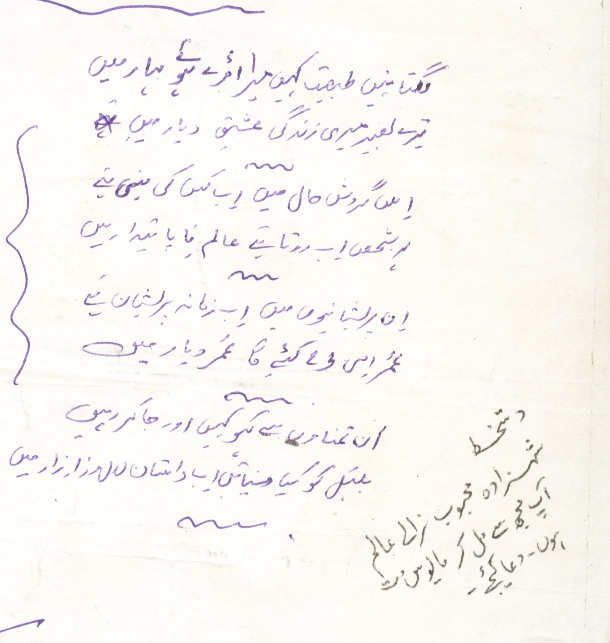 لگتا نہیں طبیعت کہیں میرا اجڑے ہوئے بہار میں
تیرے بغیر میری زندگی عشق دیار میں
اس گردش حال میں اب کس کی بنی ہے
ہر شخص اب روتا ہے عالم نا پائیدار میں
ان پریشانیوں میں اب زمانہ پریشان ہے
عمر اسی کئے گا عمر دیار میں
ان تمناوں سے کہو کہیں اور جا کر رہیں
بلبل کو کیا اب داستان زار میں
دستخط
شہزادہ محبوب نرالے عالم
آپ مجھ سے مل کر مایوس مت
ہوں۔ دعا کیجئے